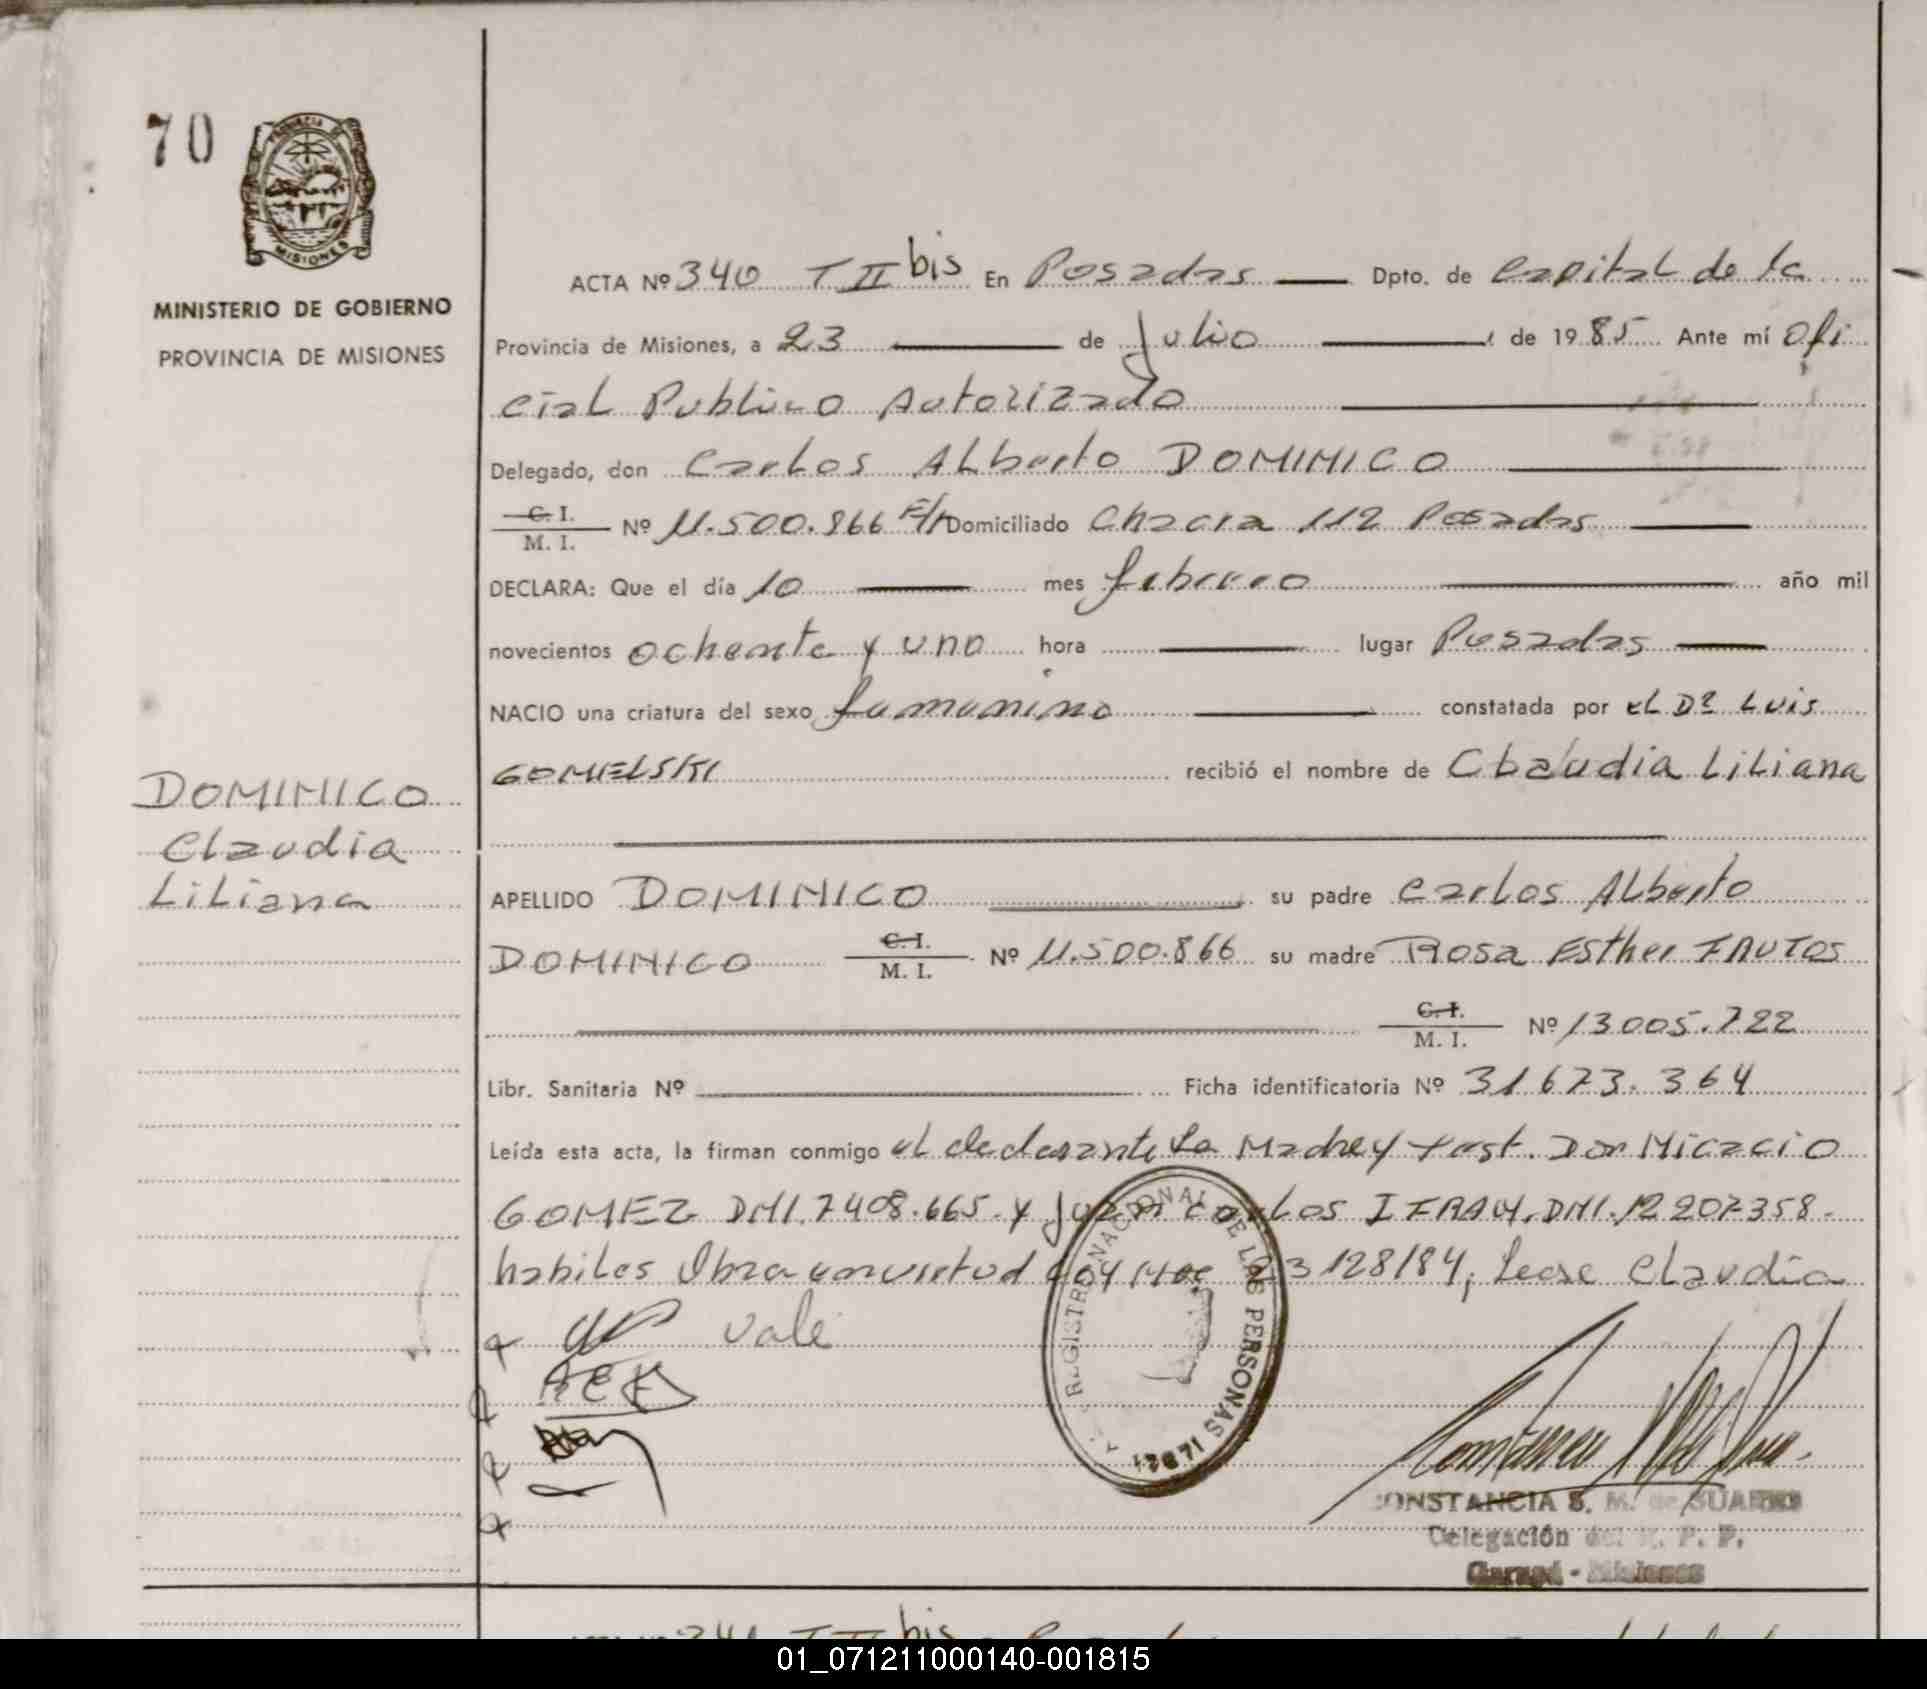 70
PROVINCIA DE
MISIONES
MINISTERIO DE GOBIERNO
PROVINCIA DE MISIONES
ACTA Nº 340 T II bis En Posadas Dpto. de Capital de la
Provincia de Misiones, a 23 de Julio de 1985 Ante mí Ofi
cial Publico Autorizado
Delegado, don Carlos Alberto DOMINICO
C. I.
M. I. Nº 11.500.866 Domiciliado Chacra 112 Posadas
DECLARA: Que el día 10 mes febrero año mil
novecientos ochenta y uno hora lugar Posadas
NACIO una criatura del sexo femenino constatada por el Dr Luis
GOMELSKI recibió el nombre de Claudia Liliana
DOMINICO
Claudia
Liliana
APELLIDO DOMINICO su padre Carlos Alberto
DOMINICO C. I. M. I. Nº 11.500.866 su madre Rosa Esther FRUTOS
C. I.
M. I. Nº 13005.722
Libr. Sanitaria Nº Ficha identificatoria Nº 31673.364
Leída esta acta, la firman conmigo el declarante La Madre y test. Don Nicacio
GOMEZ DNI.7408.665 y Juan Carlos IFRAN.DNI.12207358.
habiles Obra en virtud Ley 23128/84, Lease Claudia
Vale
REGISTRO NACIONAL DE LAS PERSONAS
CONSTANCIA S. M. de SUAREZ
Delegación del R. P. P.
Garupá - Misiones
bis
01_071211000140-001815